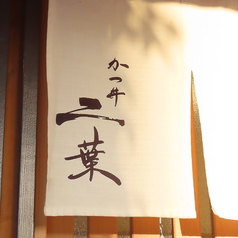 かつ丼
二葉